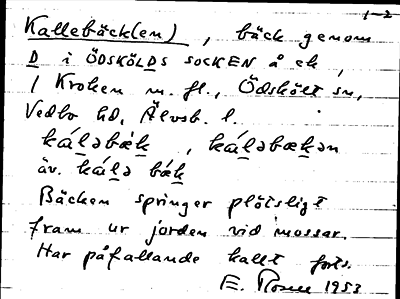 1-2
Kallebäck(en), bäck genom
D i ÖDSKÖLDS SOCKEN å ek,
/ Kroken m. fl., Ödskölt sn,
Vedbo hd, Älvsb. l.
káləbæk, káləbækən
äv. kálə bæk
Bäcken springer plötsligt
fram ur jorden vid mossar.
Har påfallande kallt forts.
E. 1953